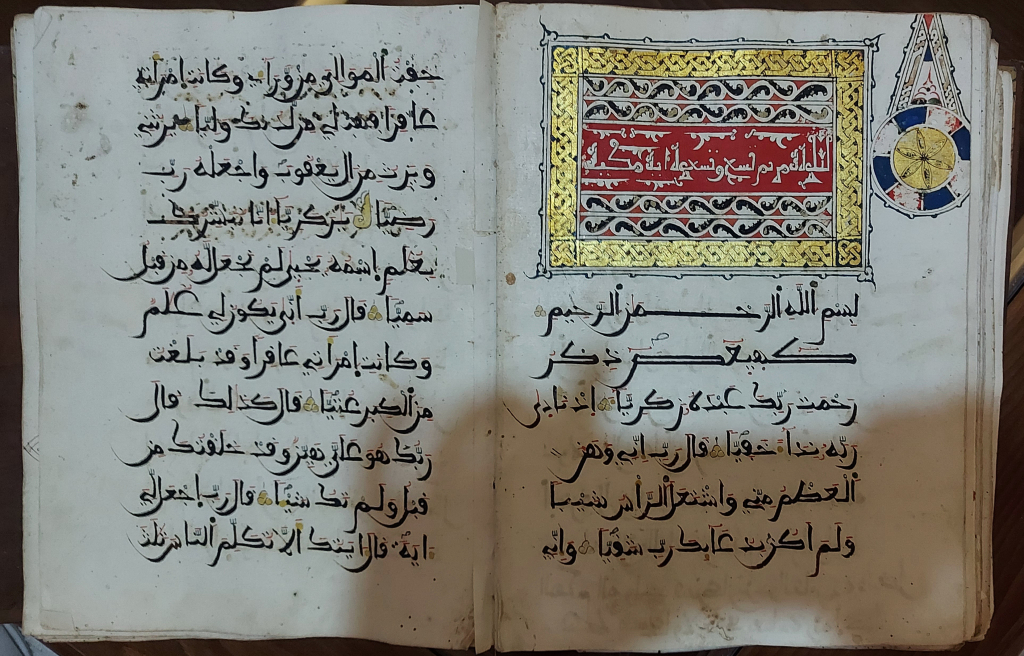 مريم تسع وتسعون اية مكية
بسم الله الرحمن الرحيم
كهيعص ذكر
رحمت ربك عبده زكريا اذ نادى
ربه نداء خفيا قال رب اني وهن
العظم مني واشتعل الراس شيبا
ولم اكن بدعايك رب شقيا واني
خفت الموالي من وراءي وكانت امراتي
عاقرا فهب لي من لدنك وليا يرثني
ويرث من ال يعقوب واجعله رب
رضيا يزكريا انا نبشرك
بغلم اسمه يحيى لم نجعل له من قبل
سميا قال رب انى يكون لي غلم
وكانت امراتي عاقرا وقد بلغت
من الكبر عتيا قال كذلك قال
ربك هو علي هين وقد خلقتك من
قبل ولم تك شيئا قال رب اجعل لي
اية قال ايتك الا تكلم الناس ثلث